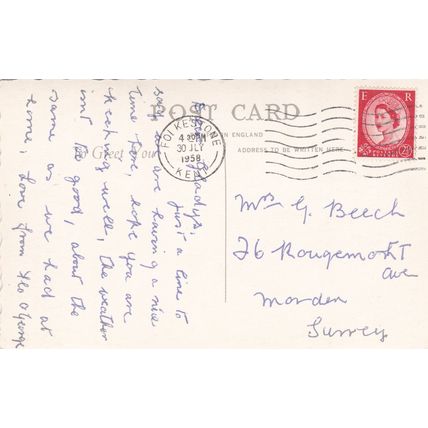 POST CARD
FOLKESTONE
4 30PM
30 JLY
1958
KENT
E R
2½
IN ENGLAND
ADDRESS TO BE WRITTEN HERE
Greet
Mrs G. Beech
26 Rougemont
Ave
Morden
Surrey
Dear Gladys,
Just a line to
say we are having a nice
time here, hope you are
keeping well, the weather
isnt too good, about the
same as we had at
home. Love from Flo & George